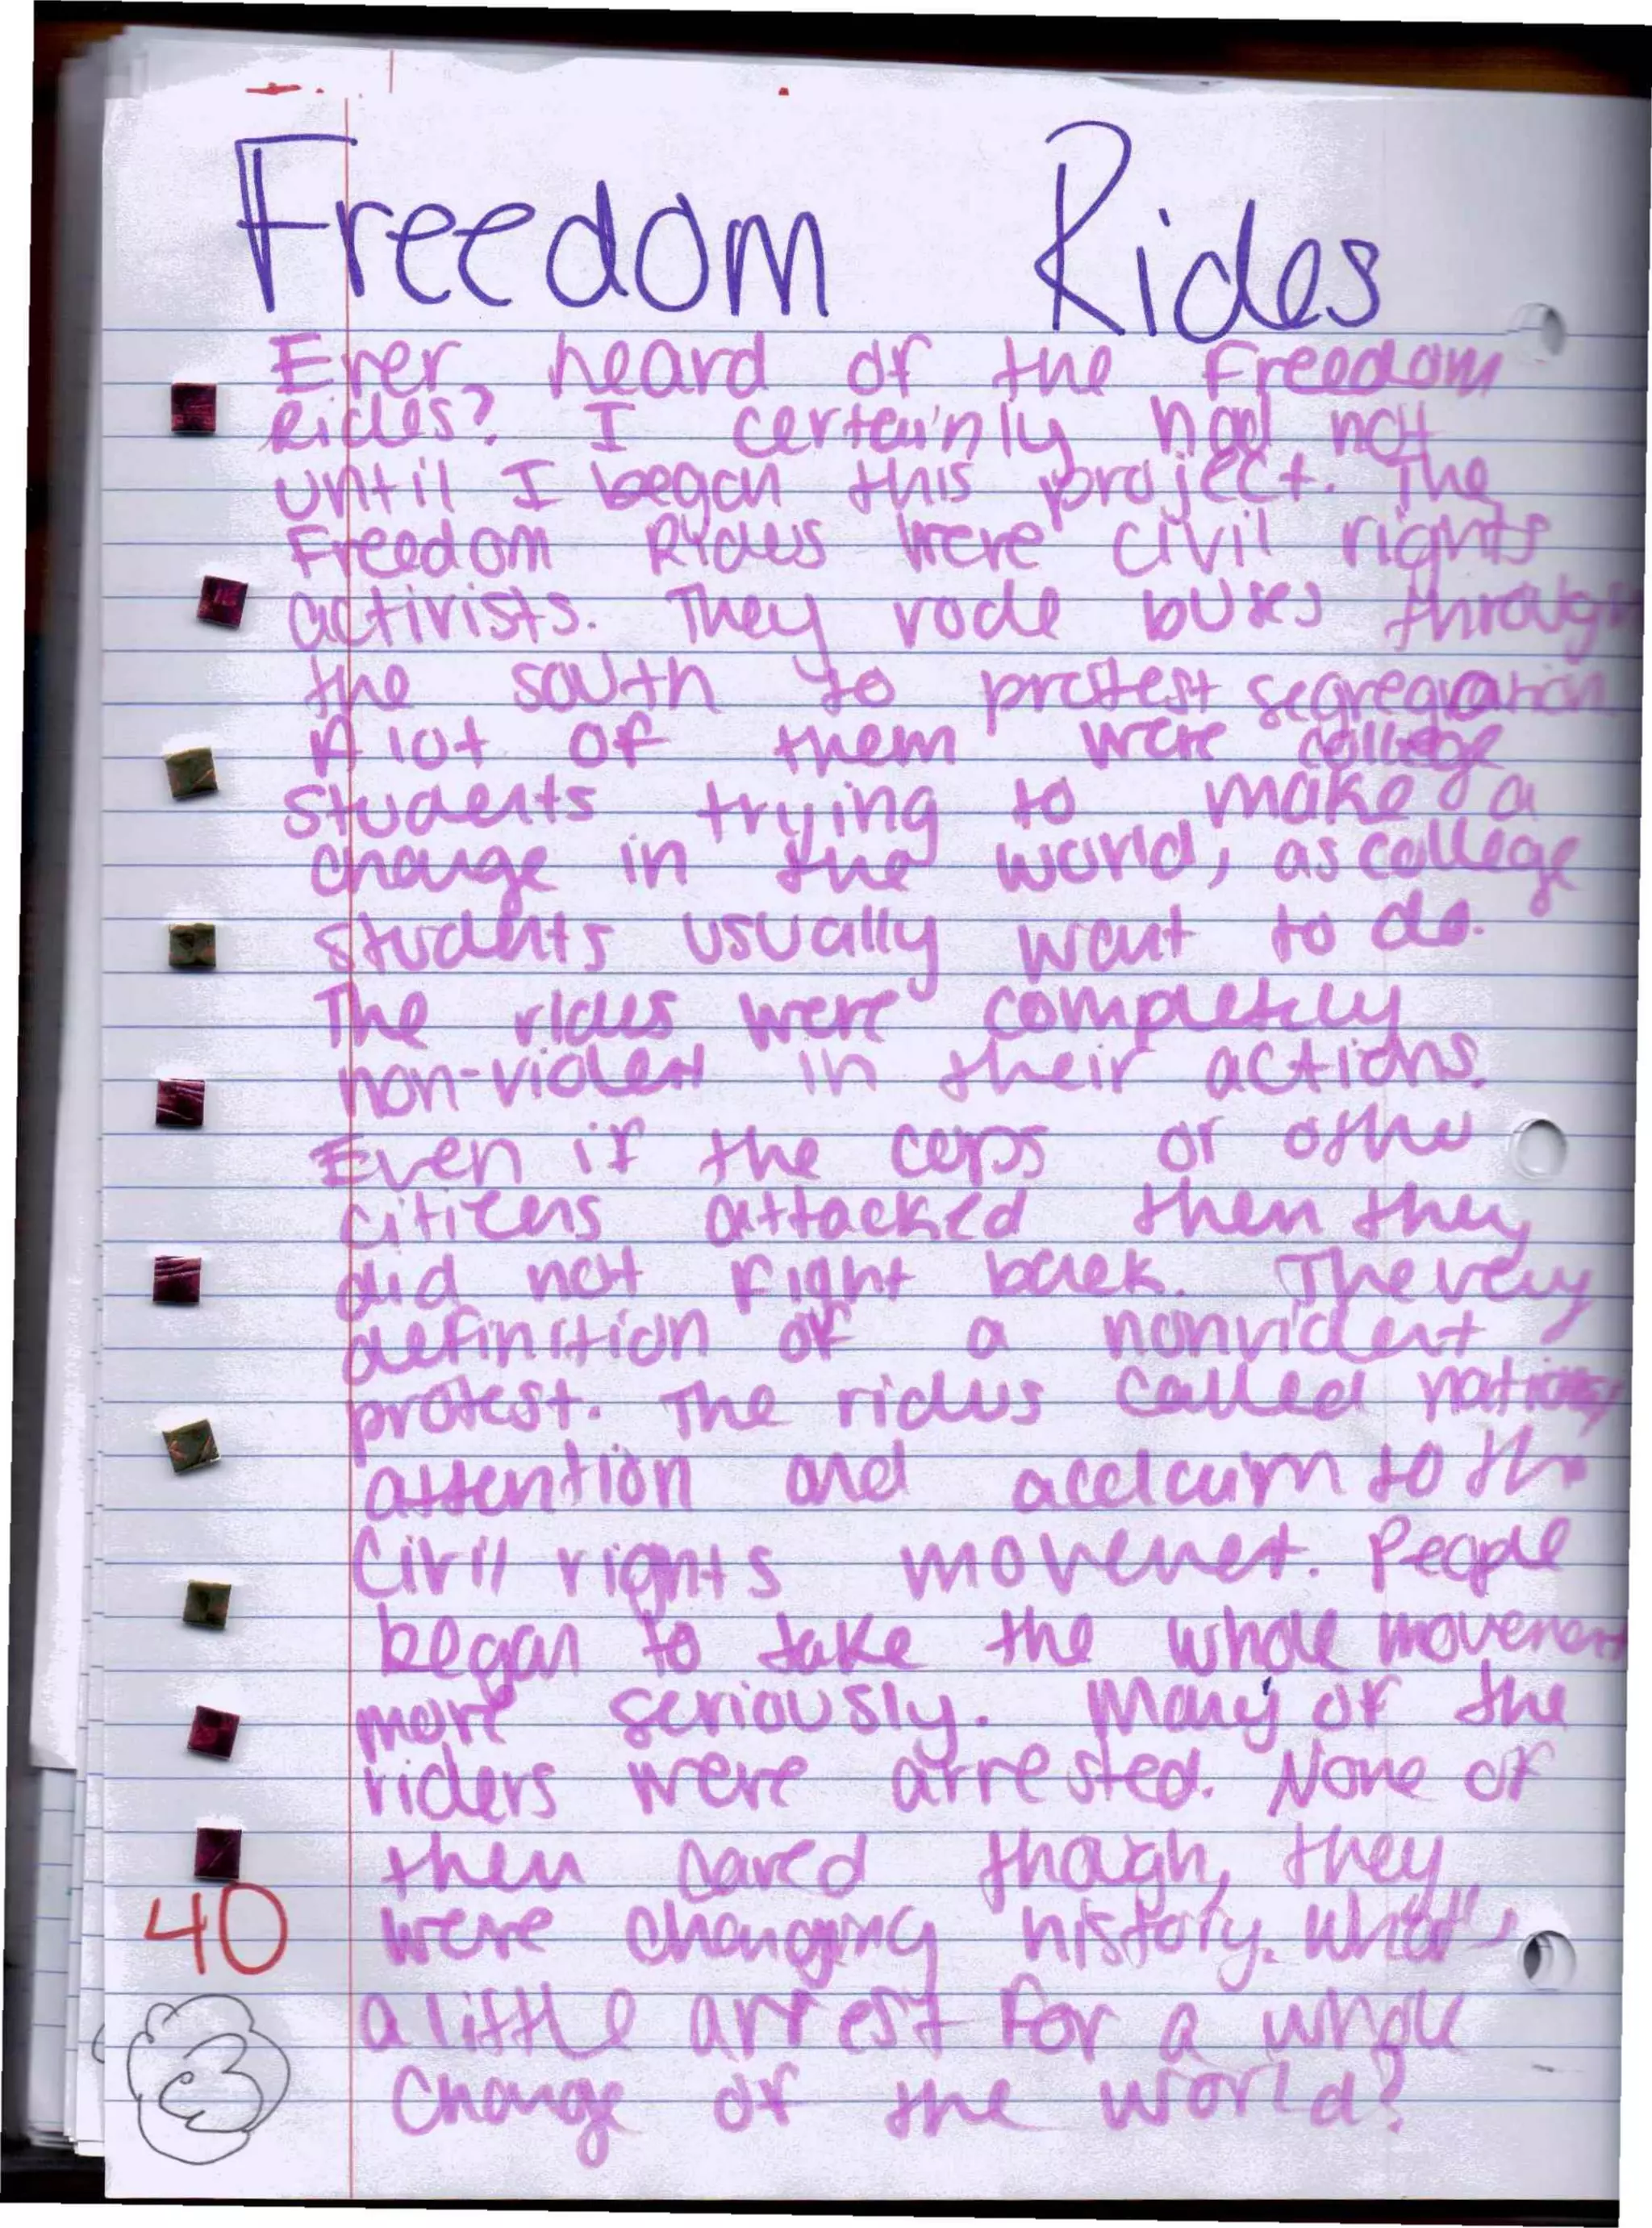 Freedom Rides
Ever heard of the Freedom
Rides? I certainly had not
until I began this project. The
Freedom Rides were civil rights
activists. They rode buses through
the south to protest segregation
A lot of them were college
students trying to make a
change in the world, as college
students usually want to do.
The rides were completely
non-violent in their actions.
Even if the cops or other
citizens attacked them they
did not fight back. The very
definition of a nonviolent
protest. The rides called
attention and acclaim to the
Civil rights movemet. People
began to take the whole movement
more seriously. Many of the
riders were arrested. None of
them cared though, they
were changing history. What's
a little arrest for a whole
Change of the world?
40